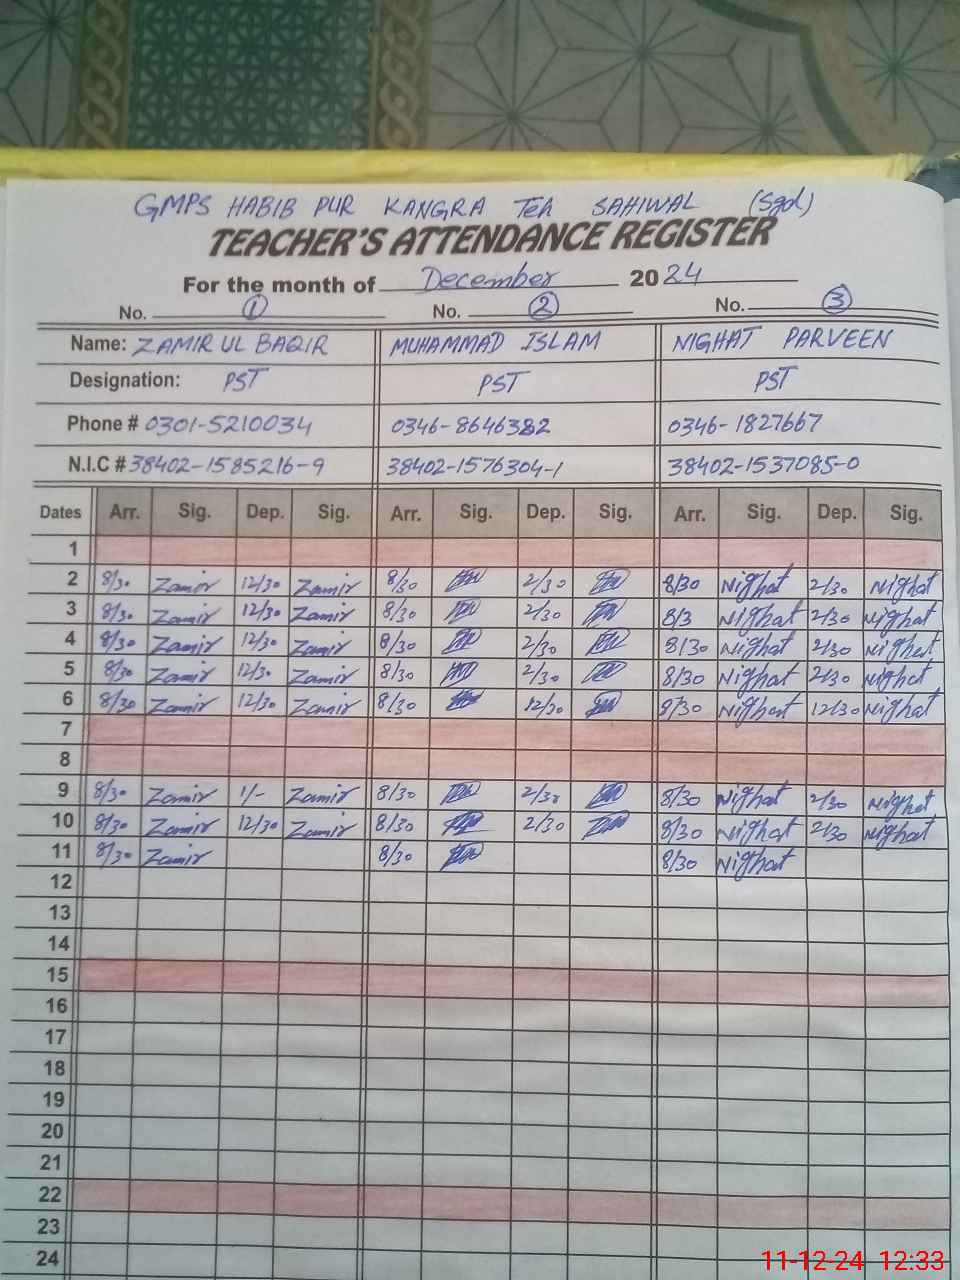 GMPS HABIB PUR KANGRA Teh SAHIWAL (Sgd)
TEACHER'S ATTENDANCE REGISTER
For the month of December 2024
No. 1 No. 2 No. 3
Name: ZAMIR UL BAQIR MUHAMMAD ISLAM NIGHAT PARVEEN
Designation: PST PST PST
Phone # 0301-5210034 0346-8646382 0346-1827667
N.I.C # 38402-1585216-9 38402-1576304-1 38402-1537085-0
Dates Arr. Sig. Dep. Sig. Arr. Sig. Dep. Sig. Arr. Sig. Dep. Sig.
1
2 8/30 Zamir 12/30 Zamir 8/30 2/30 8/30 Nighat 2/30 Nighat
3 8/30 Zamir 12/30 Zamir 8/30 2/30 8/3 Nighat 2/30 Nighat
4 8/30 Zamir 12/30 Zamir 8/30 2/30 8/30 Nighat 2/30 Nighat
5 8/30 Zamir 12/30 Zamir 8/30 2/30 8/30 Nighat 2/30 Nighat
6 8/30 Zamir 12/30 Zamir 8/30 12/30 8/30 Nighat 12/30 Nighat
7
8
9 8/30 Zamir 1/- Zamir 8/30 2/30 8/30 Nighat 2/30 Nighat
10 8/30 Zamir 12/30 Zamir 8/30 2/30 8/30 Nighat 2/30 Nighat
11 8/30 Zamir 8/30 8/30 Nighat
12
13
14
15
16
17
18
19
20
21
22
23
24
11-12-24 12:33